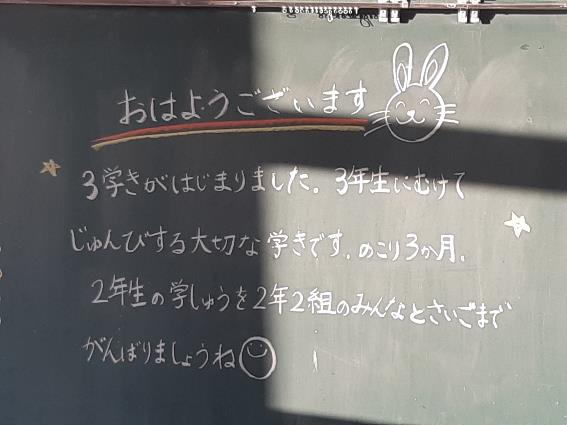 おはようございます
3学きがはじまりました。3年生にむけて
じゅんびする大切な学きです。のこり3か月。
2年生の学しゅうを2年2組のみんなとさいごまで
がんばりましょうね